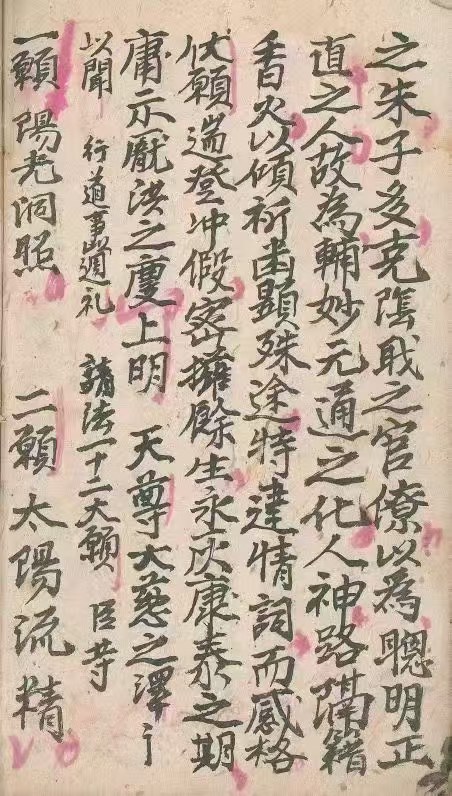 之朱子多克陰戝之官僚以為聰明正
直之人故為輔妙元通之化人神路隔籍
香火以傾祈幽顕殊途特達情詞而感格
伏願遄登冲假密擁餘生永庆康泰之期
庸示厭洪之慶上明 天尊大慈之澤
以聞 行道事週礼 請法一十二大願 臣等
一願陽光洞照 二願太陽流精